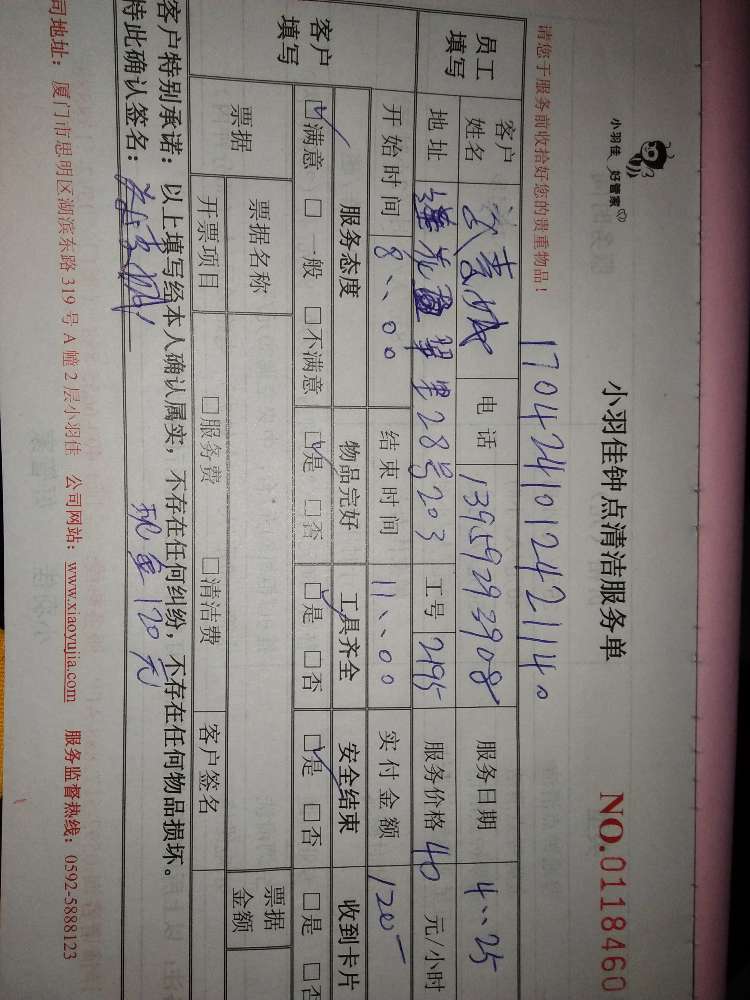 小羽佳 好管家
小羽佳钟点清洁服务单
NO.0118460
请您于服务前收拾好您的贵重物品!
1704241012421140
员工填写 客户姓名 电话 13959293908 服务日期 4、、25
地址 莲花 翠里28号203 工号 2195 服务价格 40 元/小时
开始时间 8、、00 结束时间 11、、00 实付金额 120-
客户填写 服务态度 物品完好 工具齐全 安全结束 收到卡片
☑满意 □一般 □不满意 ☑是 □否 ☑是 □否 ☑是 □否 □是 □否
票据 票据名称 票据金额
开票项目 □服务费 □清洁费 客户签名
客户特别承诺:以上填写经本人确认属实,不存在任何纠纷,不存在任何物品损坏。
特此确认签名: 现金120元
司地址:厦门市思明区湖滨东路319号A幢2层小羽佳 公司网站:www.xiaoyujia.com 服务监督热线:0592-5888123